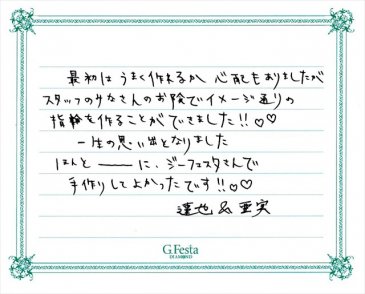 最初はうまく作れるか 心配もありましたが
スタッフのみなさんのお陰でイメージ通りの
指輪を作ることができました!!♡♡
一生の思い出となりました
ほんと――に、ジーフェスタさんで
手作りしてよかったです!!♡♡
達也 & 亜実
G.Festa
DIAMOND